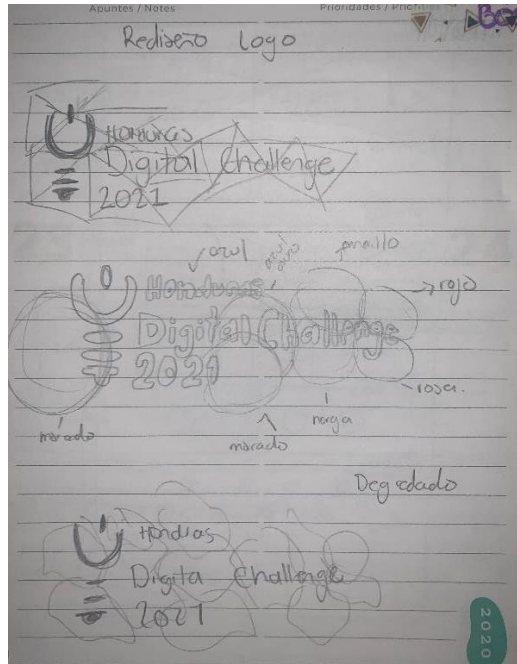 Apuntes / Notes
Prioridades / Priorities
Rediseño Logo
Honduras
Digital Challenge
2021
azul
amarillo
rojo
Honduras
Digital Challenge
2021
rosa.
morado
morado
Degradado
Hondras
Digita Challenge
2021
2020